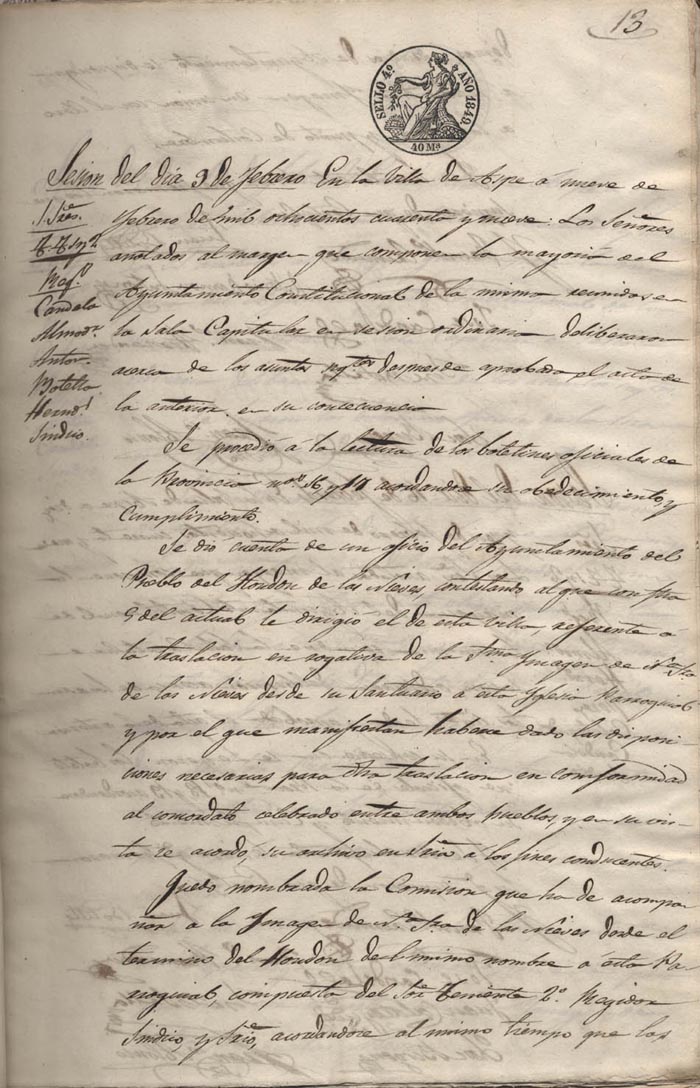 13
SELLO 4º AÑO 1849.
40 Ms
Sesion del dia 9 de febrero En la Villa de Aspe á nueve de
febrero de mil ochocientos cuarenta y nueve: Los Señores
anotados al margen que componen la mayoria del
Ayuntamiento Constitucional de la misma reunidos en
la Sala Capitular en sesion ordinaria deliberaron
acerca de los asuntos sigtes despues de aprobada el acta de
la anterior en su consecuencia
S. Sres.
T. 2º
Reg.s
Candela
Almodr.
Anton.
Botella
Hernd.
Sindico.
Se procedió á la lectura de los boletines oficiales de
la Provincia nos. 16 y 17 acordandose su obedecimiento, y
cumplimiento.
Se dió cuenta de un oficio del Ayuntamiento del
Pueblo del Hondon de las Nieves, contestando al que con fha
5 del actual le dirigió el de esta villa, referente a
la traslacion en rogativa de la Sma Ymagen de Ntra Sra
de las Nieves desde su Santuario a esta Yglesia Parroquial
y por el que manifiestan haberse dado las disposi
ciones necesarias para dha traslacion en conformidad
al concordato celebrado entre ambos Pueblos, y en su vis-
ta se acordó, su archivo en Sria a los fines conducentes.
Quedo nombrada la Comision que ha de acompa-
ñar a la Ymagen de Ntra Sra de las Nieves desde el
termino del Hondon del mismo nombre a esta Pa-
rroquial, compuesta del Sor. Teniente 2º. Regidor
Sindico, y Srio, acordandose al mismo tiempo que los